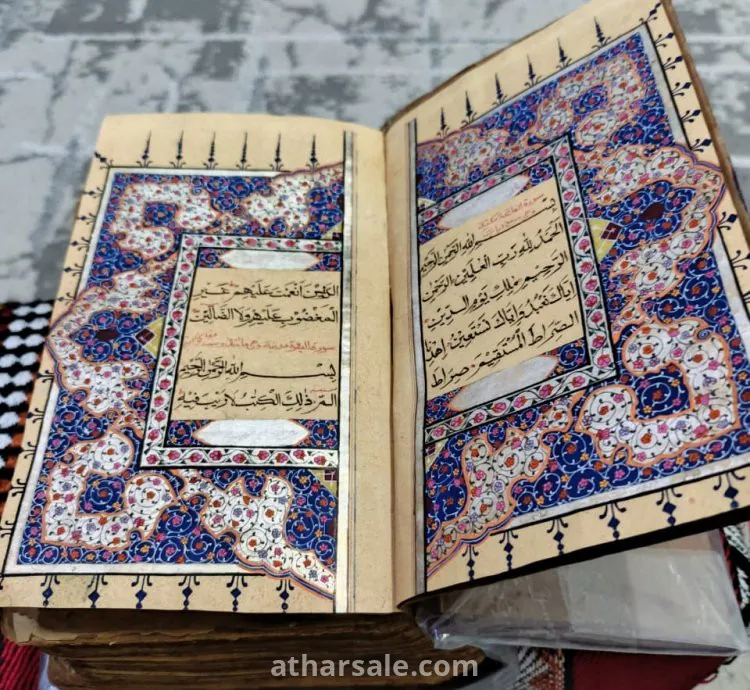 سورة الفاتحة
بسم الله الرحمن الرحيم
الحمد لله رب العلمين الرحمن
الرحيم ملك يوم الدين
اياك نعبد واياك نستعين اهدنا
الصراط المستقيم صراط
الذين انعمت عليهم غير
المغضوب عليهم ولا الضالين
سورة البقرة
بسم الله الرحمن الرحيم
الم ذلك الكتب لا ريب فيه
atharsale.com